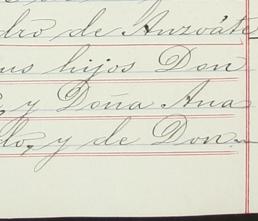 dro de Anzoáte
us hijos Don
, y Doña Ana
do, y de Don